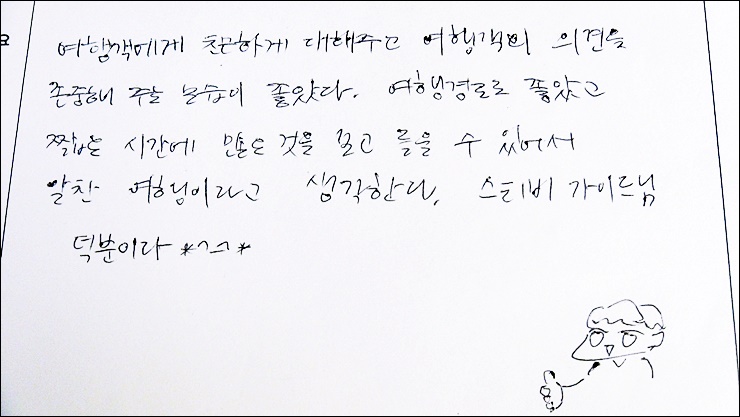 여행객에게 친근하게 대해주고 여행객의 의견을
존중해 주는 모습이 좋았다. 여행경로도 좋았고
짧은 시간에 많은 것을 보고 들을 수 있어서
알찬 여행이라고 생각한다. 스티비 가이드님
덕분이라 *^^*